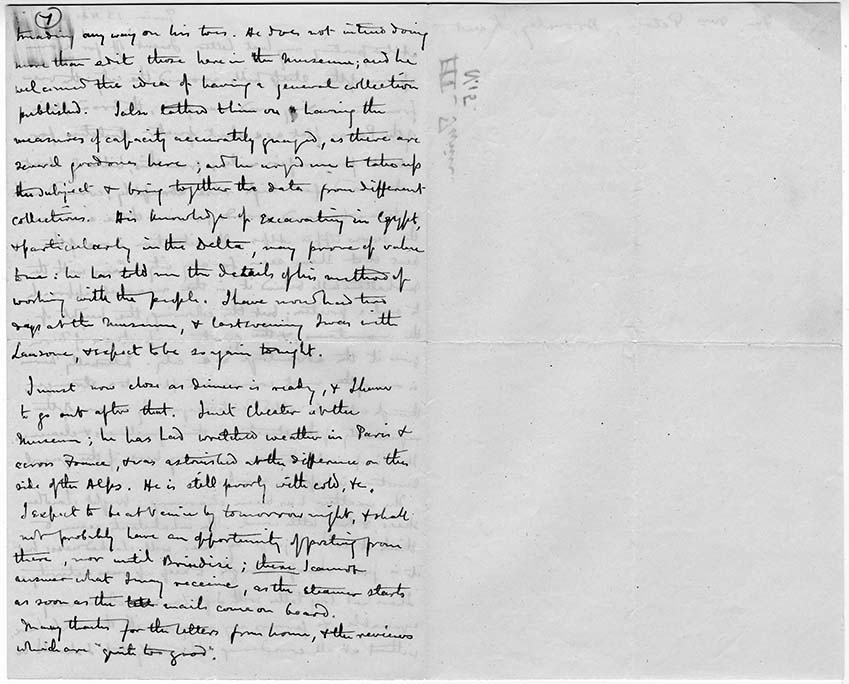 7
treading any way on his toes. He does not intend doing
more than edit those here in the Museum; and he
welcomed the idea of having a general collection
published. I also talked to him on having the
measures of capacity accurately guaged, as there are
several good ones here; and he urged me to take up
the subject & bring together the data from different
collections. His knowledge of excavating in Egypt,
& particularly in the Delta, may prove of value
to me: he has told me the details of his method of
working with the people. I have now had two
days at the Museum, & last evening I was with
Lanzone, & expect to be so again tonight.
I must now close as dinner is ready, & I have
to go out after that. I met Chester at the
Museum; he has had wretched weather in Paris &
across France, & was astonished at the difference on this
side of the Alps. He is still poorly with cold, &c.
I expect to be at Venice by tomorrow night, & shall
not probably have an opportunity of posting from
there, nor until Brindisi; there I cannot
answer what I may receive, as the steamer starts
as soon as the mails come on board.
Many thanks for the letters from home, & the reviews
which are "quite too good".